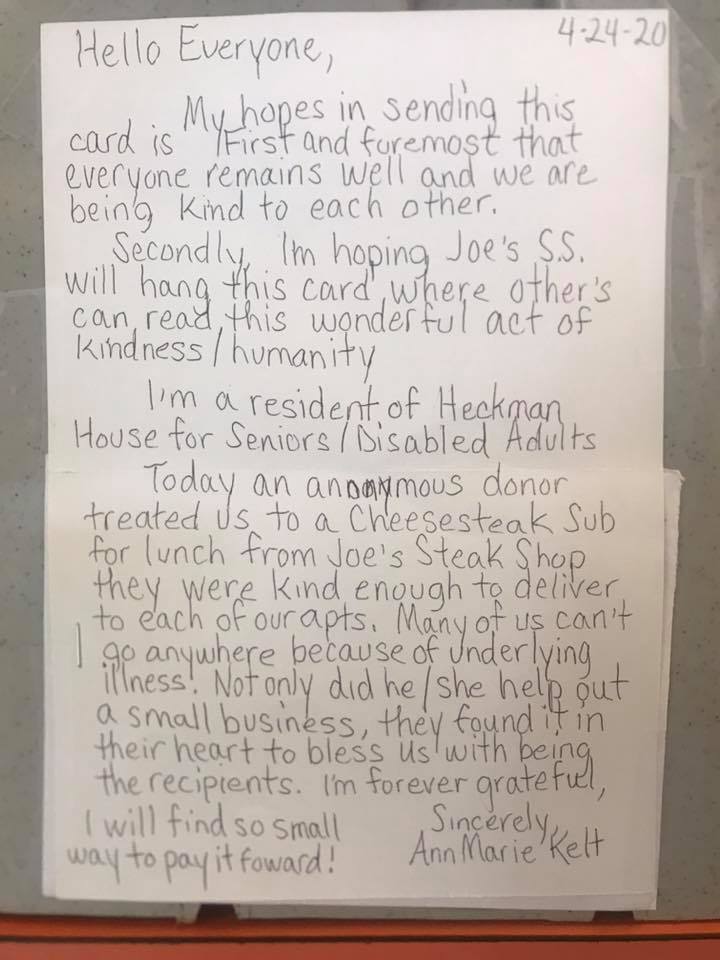 4-24-20
Hello Everyone,
My hopes in sending this
card is First and foremost that
everyone remains well and we are
being kind to each other.
Secondly, Im hoping Joe's S.S.
will hang this card where other's
can read this wonderful act of
kindness/humanity
I'm a resident of Heckman
House for Seniors/Disabled Adults
Today an anonymous donor
treated us to a Cheesesteak Sub
for lunch from Joe's Steak Shop
they were kind enough to deliver
to each of our apts. Many of us can't
go anywhere because of underlying
illness. Not only did he/she help out
a small business, they found it in
their heart to bless us with being
the recipients. I'm forever grateful,
I will find so small
way to pay it foward!
Sincerely,
AnnMarie Kelt